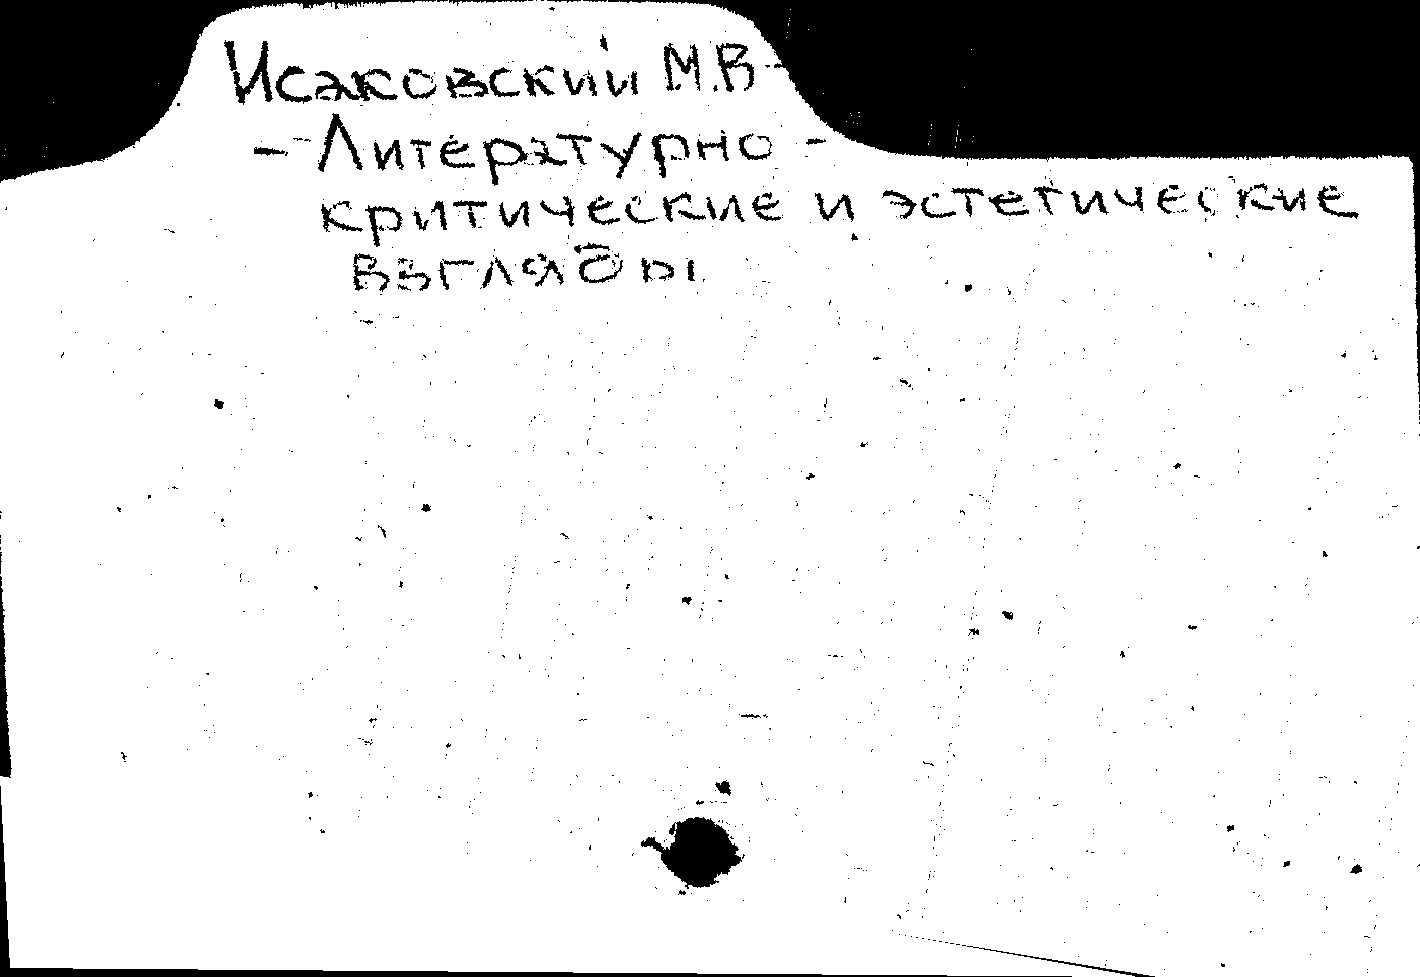 Исаковский М.В
- Литературно -
критические и эстетические
взгляды